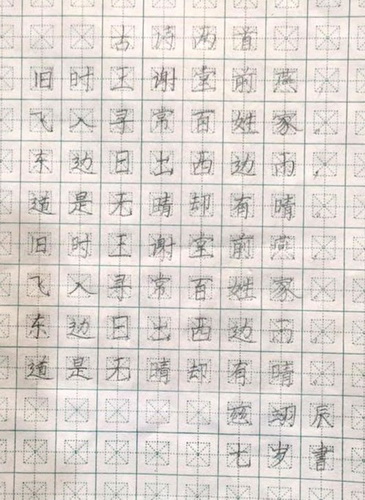 古诗两首
旧时王谢堂前燕,
飞入寻常百姓家。
东边日出西边雨,
道是无晴却有晴。
旧时王谢堂前燕,
飞入寻常百姓家。
东边日出西边雨,
道是无晴却有晴。
翊辰
七岁書